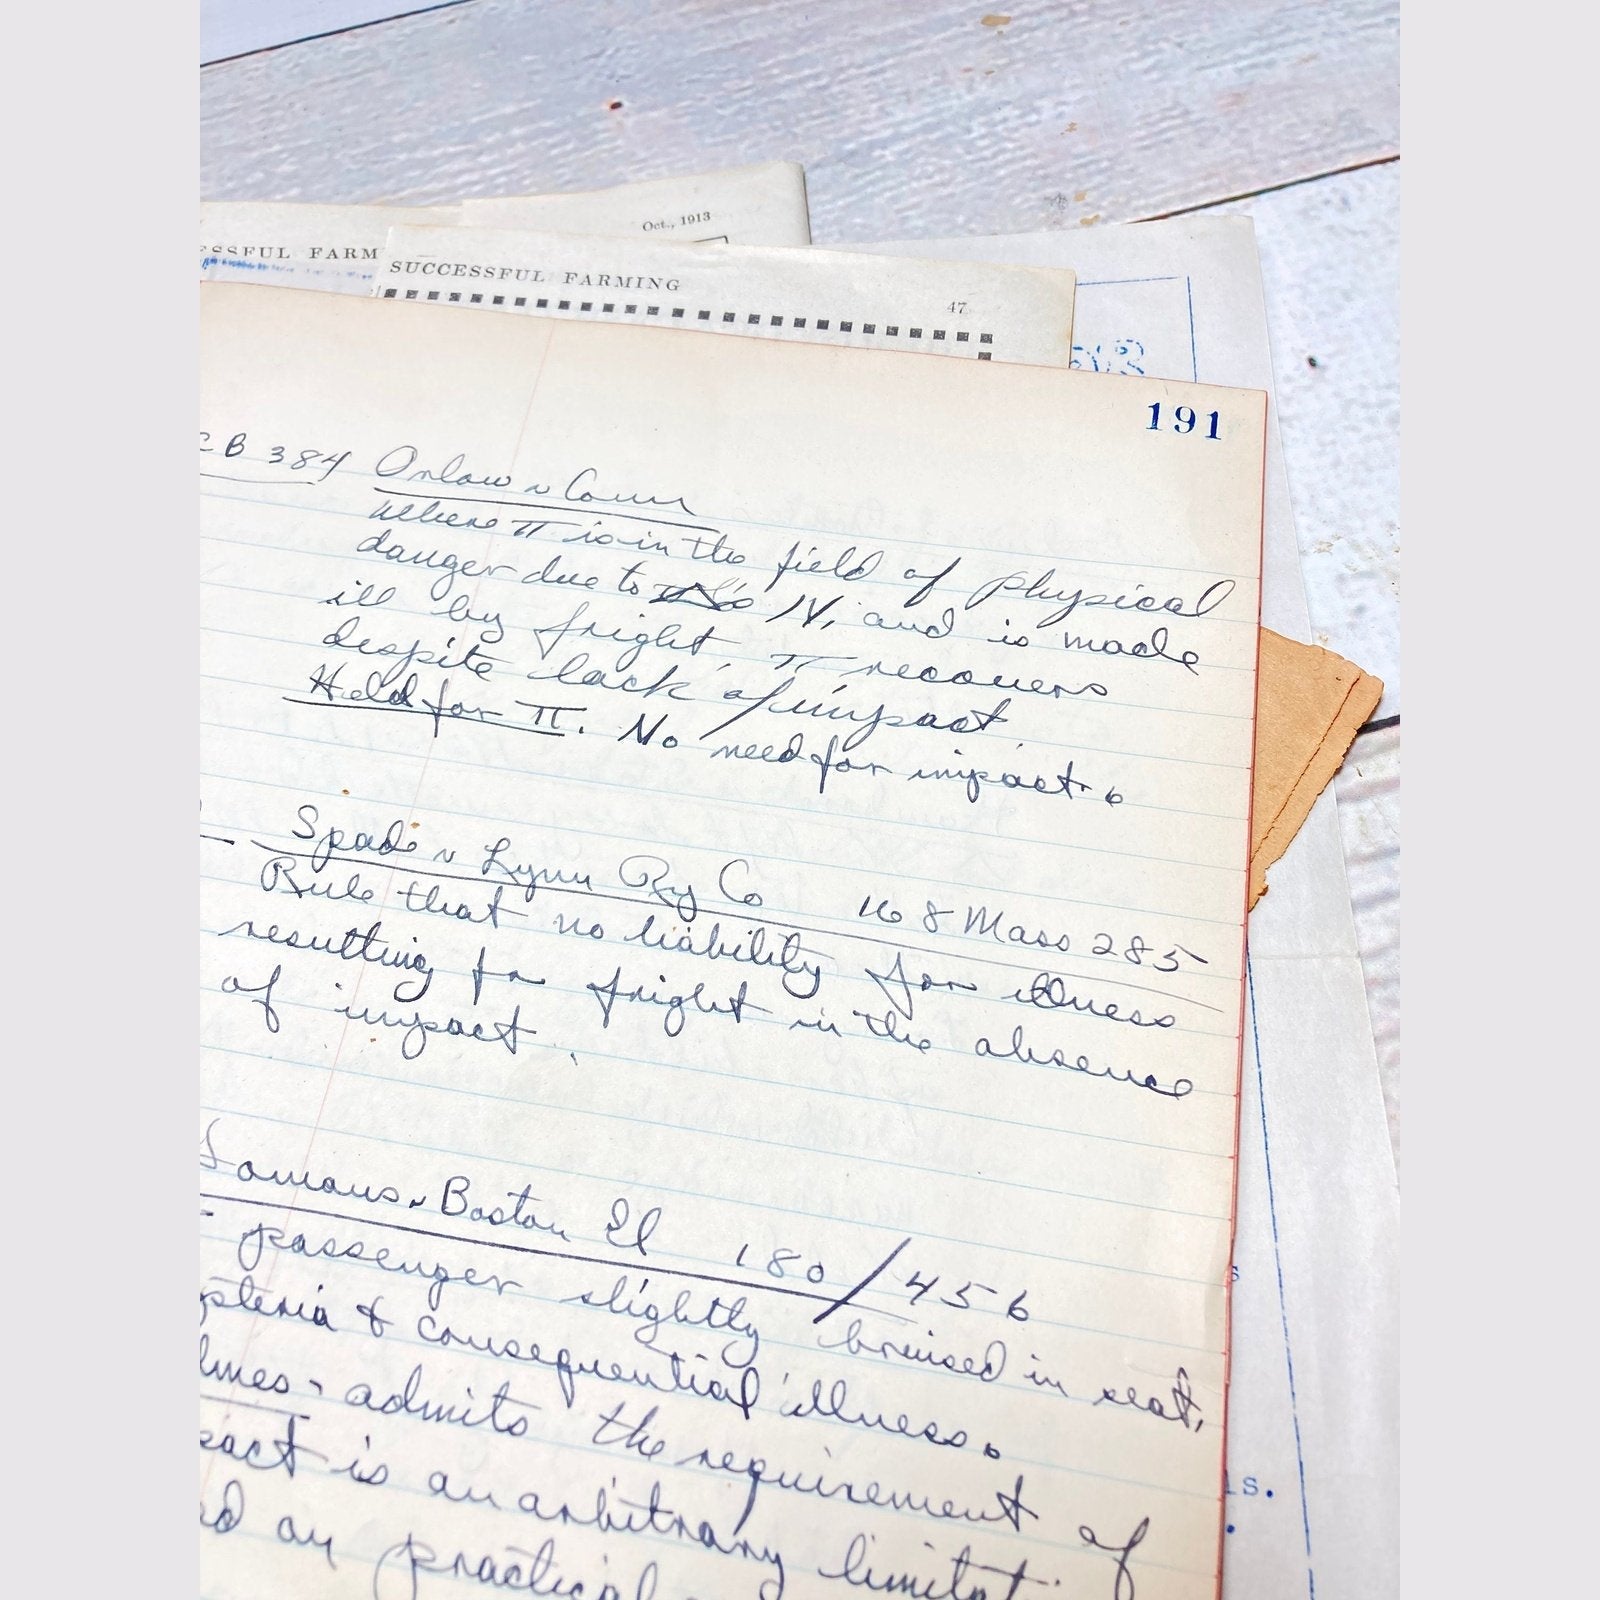 Oct., 1913
ESSFUL FARM
SUCCESSFUL FARMING
47
191
CB 384 Orlow v Conn
Where π is in the field of physical
danger due to N, and is made
ill by fright, π recovers
despite lack of impact
Held for π. No need for impact.
Spade v Lynn Ry Co 168 Mass 285
Rule that no liability for illness
resulting fr fright in the absence
of impact.
Homans v Boston El 180/456
passenger slightly bruised in seat,
ysteria & consequential illness.
lmes - admits the requirement of
pact is an arbitrary limitati
ed on practical
s
is.